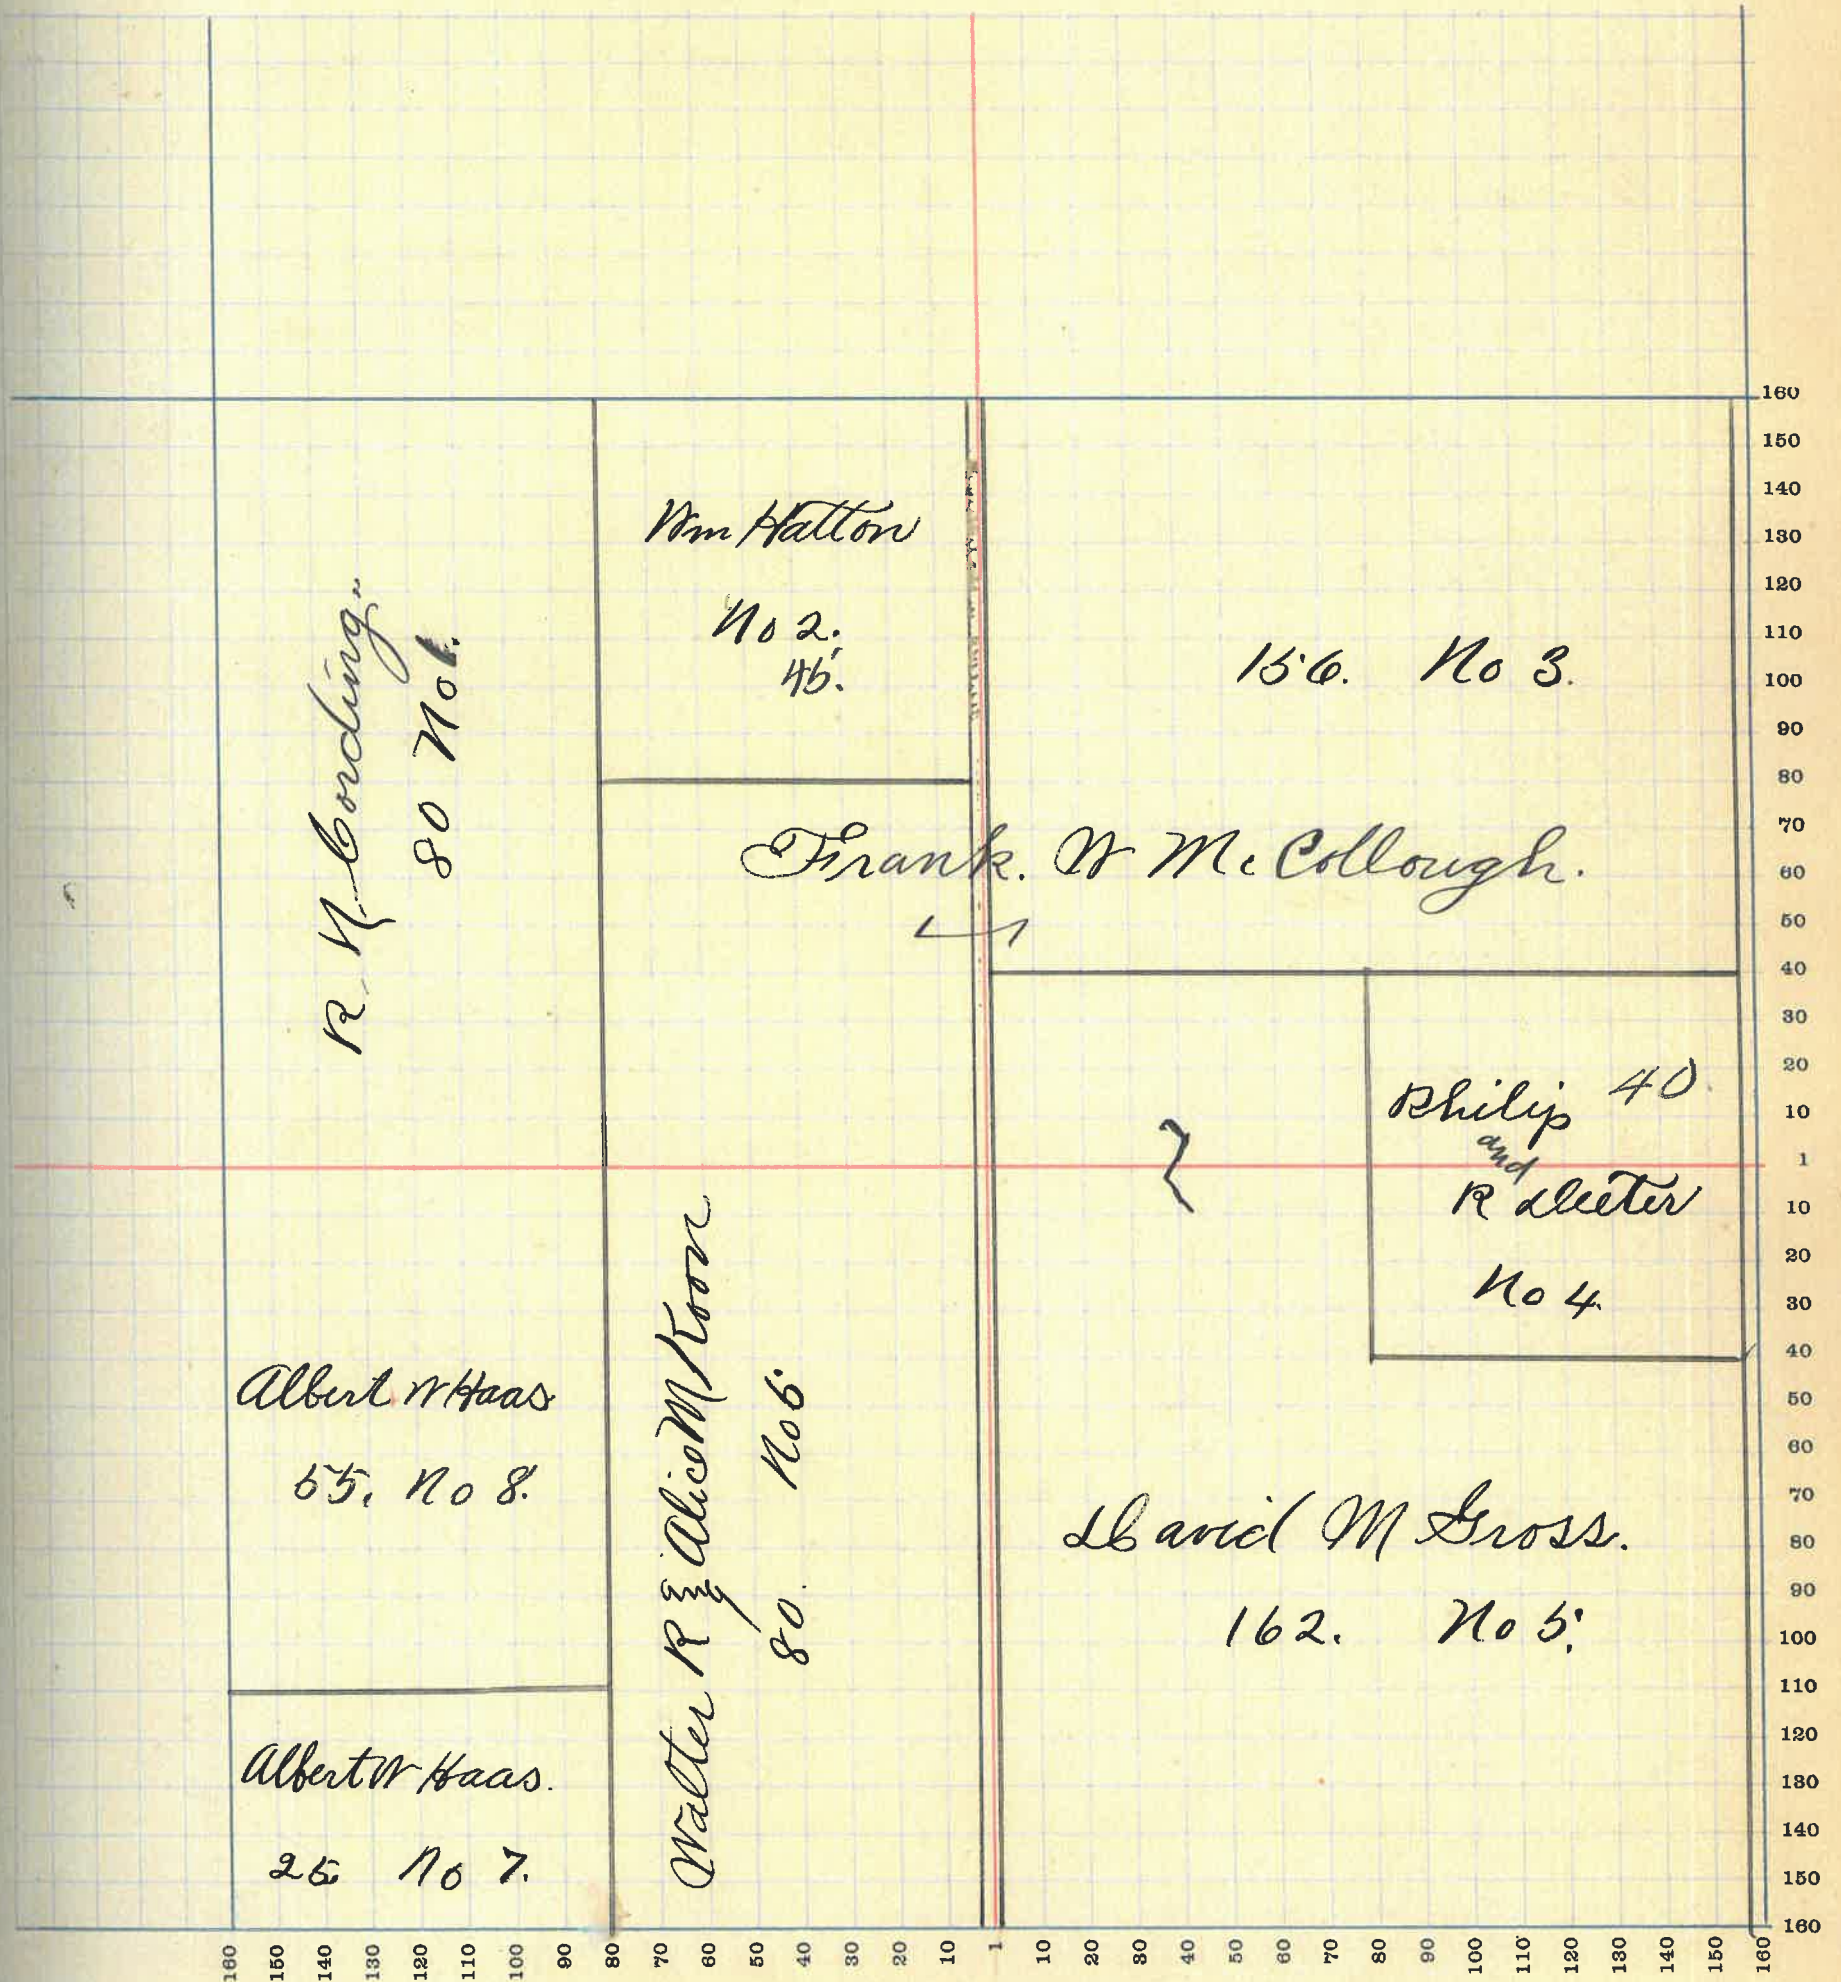 R N Cording.
80 No 1.
Wm Hatton
No 2.
45.
156. No 3.
Frank. W McCollough.
Philip 40
and
R Deeter
No 4
Albert W Haas
55. No 8.
Walter R & Alice M Koon
80. No 6
David M Gross.
162. No 5.
Albert W Haas.
25 No 7.
160
150
140
130
120
110
100
90
80
70
60
50
40
30
20
10
1
10
20
30
40
50
60
70
80
90
100
110
120
130
140
150
160
160 150 140 130 120 110 100 90 80 70 60 50 40 30 20 10 1 10 20 30 40 50 60 70 80 90 100 110 120 130 140 150 160